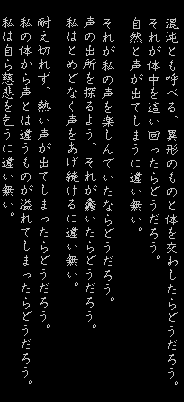 混沌とも呼べる、異形のものと体を交わしたらどうだろう。
それが体中を這い回ったらどうだろう。
自然と声が出てしまうに違い無い。
それが私の声を楽しんでいたならどうだろう。
声の出所を探るよう、それが蠢いたらどうだろう。
私はとめどなく声をあげ続けるに違い無い。
耐え切れず、熱い声が出てしまったらどうだろう。
私の体から声とは違うものが溢れてしまったらどうだろう。
私は自ら慈悲を乞うに違い無い。